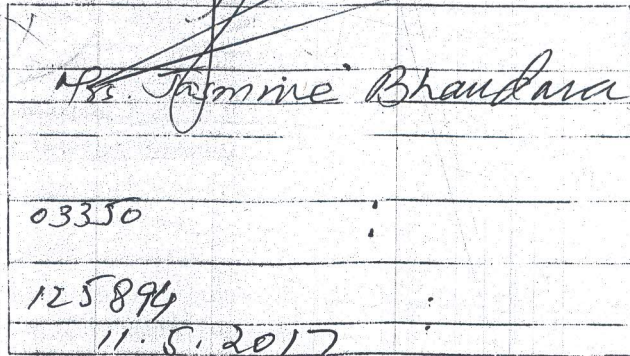 Mrs. Jasmine Bhandara
03350 :
125894 :
11.5.2017